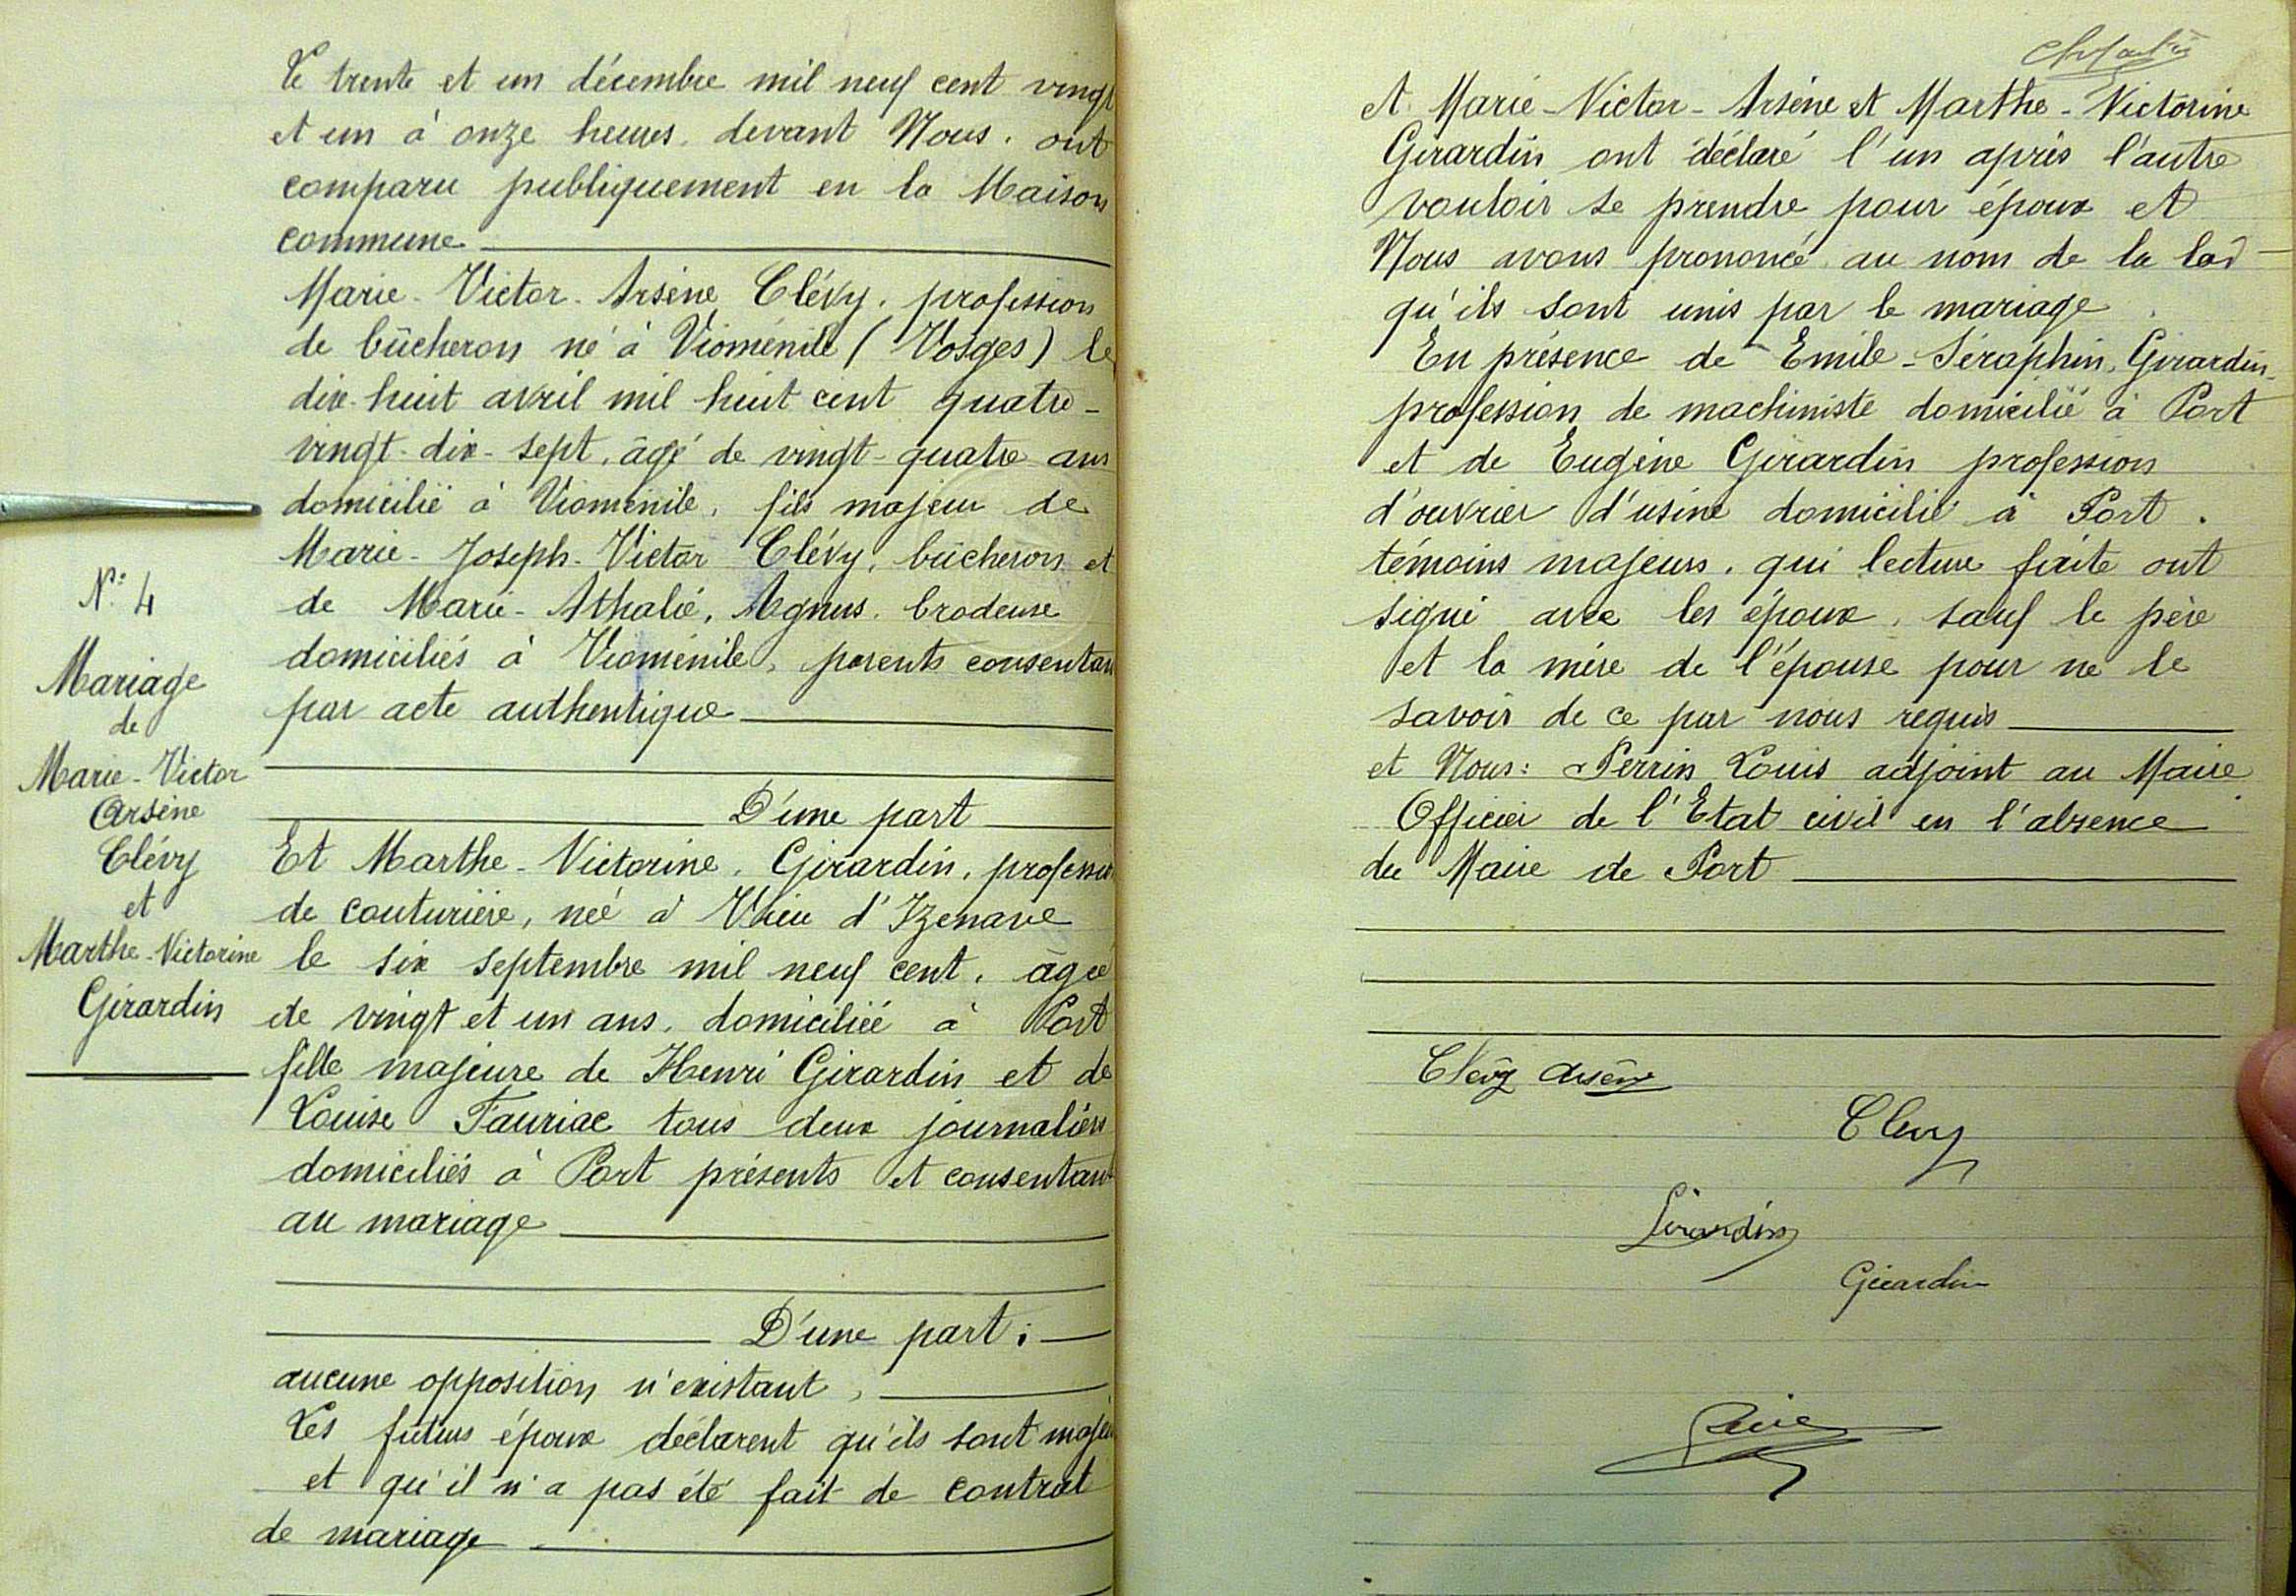 N°: 4
Mariage
de
Marie-Victor
Arsène
Clévy
et
Marthe-Victorine
Girardin
Le trente et un décembre mil neuf cent vingt
et un à onze heures. devant Nous. ont
comparu publiquement en la Maison
commune
Marie-Victor-Arsène Clévy, profession
de bûcheron né à Vioménil (Vosges) le
dix-huit avril mil huit cent quatre-
vingt-dix-sept, âgé de vingt-quatre ans
domicilié à Vioménile, fils majeur de
Marie-Joseph-Victor Clévy, bûcheron et
de Marie-Athalie, Agnus, brodeuse
domiciliés à Vioménile, parents consentan
par acte authentique
D'une part
Et Marthe-Victorine, Girardin, profession
de couturière, née à Vieu d'Izenave
le six septembre mil neuf cent, âgée
de vingt et un ans, domiciliée à Port
fille majeure de Henri Girardin et de
Louise Fauriac tous deux journaliers
domiciliés à Port présents et consentant
au mariage
D'une part;
aucune opposition n'existant,
Les futurs époux déclarent qu'ils sont majeu
et qu'il n'a pas été fait de contrat
de mariage
et Marie-Victor-Arsène et Marthe-Victorine
Girardin ont déclaré l'un après l'autre
vouloir se prendre pour époux et
Nous avons prononcé au nom de la loi
qu'ils sont unis par le mariage
En présence de Emile-Séraphin, Girardin
profession de machiniste domicilié à Port
et de Eugène Girardin profession
d'ouvrier d'usine domicilié à Port.
témoins majeurs. qui lecture faite ont
signé avec les époux, sauf le père
et la mère de l'épouse pour ne le
savoir de ce par nous requis
et Nous: Perrin Louis adjoint au Maire
Officier de l'Etat civil en l'absence
du Maire de Port
Clévy Arsène
Clevy
Girardin
Girardin